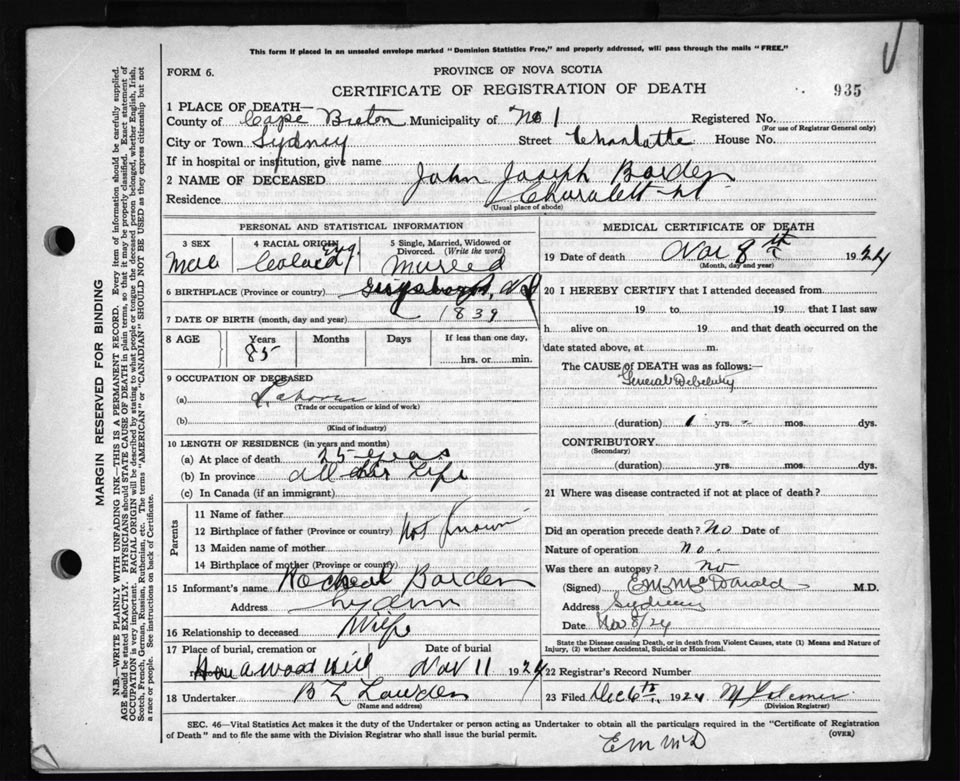 This form if placed in an unsealed envelope marked "Dominion Statistics Free," and properly addressed, will pass through the mails "FREE."
FORM 6.
PROVINCE OF NOVA SCOTIA
CERTIFICATE OF REGISTRATION OF DEATH
935
1 PLACE OF DEATH—
County of Cape Breton Municipality of No 1 Registered No.
(For use of Registrar General only)
City or Town Sydney Street Charlotte House No.
If in hospital or institution, give name
2 NAME OF DECEASED John Joseph Borden
Residence
(Usual place of abode)
PERSONAL AND STATISTICAL INFORMATION
3 SEX Male
4 RACIAL ORIGIN Colored
5 Single, Married, Widowed or Divorced. (Write the word)
6 BIRTHPLACE (Province or country)
7 DATE OF BIRTH (month, day and year) 1839
8 AGE Years 85 Months Days If less than one day, hrs. or min.
9 OCCUPATION OF DECEASED
(a)
(Trade or occupation or kind of work)
(b)
(Kind of industry)
10 LENGTH OF RESIDENCE (in years and months)
(a) At place of death 25 years
(b) In province all life
(c) In Canada (if an immigrant)
Parents
11 Name of father
12 Birthplace of father (Province or country) Not Known
13 Maiden name of mother
14 Birthplace of mother (Province or country)
15 Informant's name Borden
Address
16 Relationship to deceased Wife
17 Place of burial, cremation or Date of burial
Nov 11 1924
18 Undertaker
(Name and address)
MEDICAL CERTIFICATE OF DEATH
19 Date of death Nov 8th 1924
(Month, day and year)
20 I HEREBY CERTIFY that I attended deceased from
19 to 19 that I last saw
h alive on 19 and that death occurred on the
date stated above, at m.
The CAUSE OF DEATH was as follows:—
General Debelity
(duration) 1 yrs. - mos. dys.
CONTRIBUTORY.
(Secondary)
(duration) yrs. mos. dys.
21 Where was disease contracted if not at place of death?
Did an operation precede death? No Date of
Nature of operation no.
Was there an autopsy? no
(Signed) M.D.
Address
Date Nov 8/24
State the Disease causing Death, or in death from Violent Causes, state (1) Means and Nature of
Injury, (2) whether Accidental, Suicidal or Homicidal.
22 Registrar's Record Number
23 Filed Dec 6th 1924
(Division Registrar)
SEC. 46—Vital Statistics Act makes it the duty of the Undertaker or person acting as Undertaker to obtain all the particulars required in the "Certificate of Registration
of Death" and to file the same with the Division Registrar who shall issue the burial permit.
(OVER)
MARGIN RESERVED FOR BINDING
N.B.—WRITE PLAINLY WITH UNFADING INK—THIS IS A PERMANENT RECORD. Every item of information should be carefully supplied.
AGE should be stated EXACTLY. PHYSICIANS should STATE CAUSE OF DEATH in plain terms, so that it may be properly classified. Exact statement of
OCCUPATION is very important. RACIAL ORIGIN will be described by stating to what people or tongue the deceased person belonged, whether English, Irish,
Scotch, French, German, Russian, Ruthenian, etc. The terms "AMERICAN" or "CANADIAN" SHOULD NOT BE USED as they express citizenship but not
a race or people. See instructions on back of Certificate.